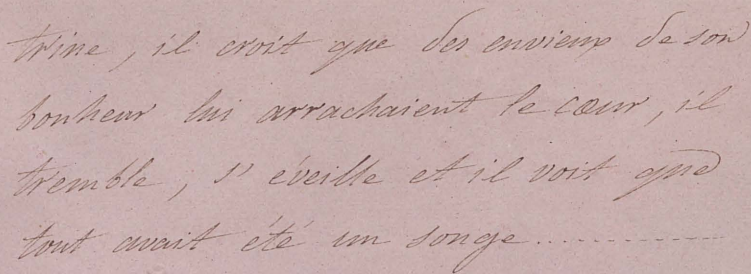 trine, il croit que des envieux de son
bonheur lui arrachaient le cœur, il
tremble, s'éveille et il voit que
tout avait été un songe................